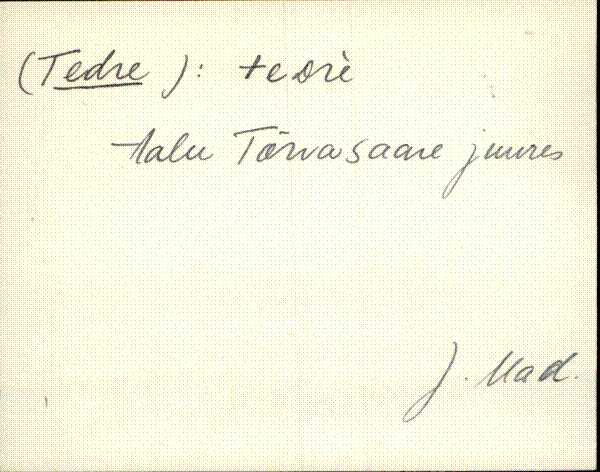 (Tedre): teᴅrè
talu Tõrvasaare juures
J. Mad.